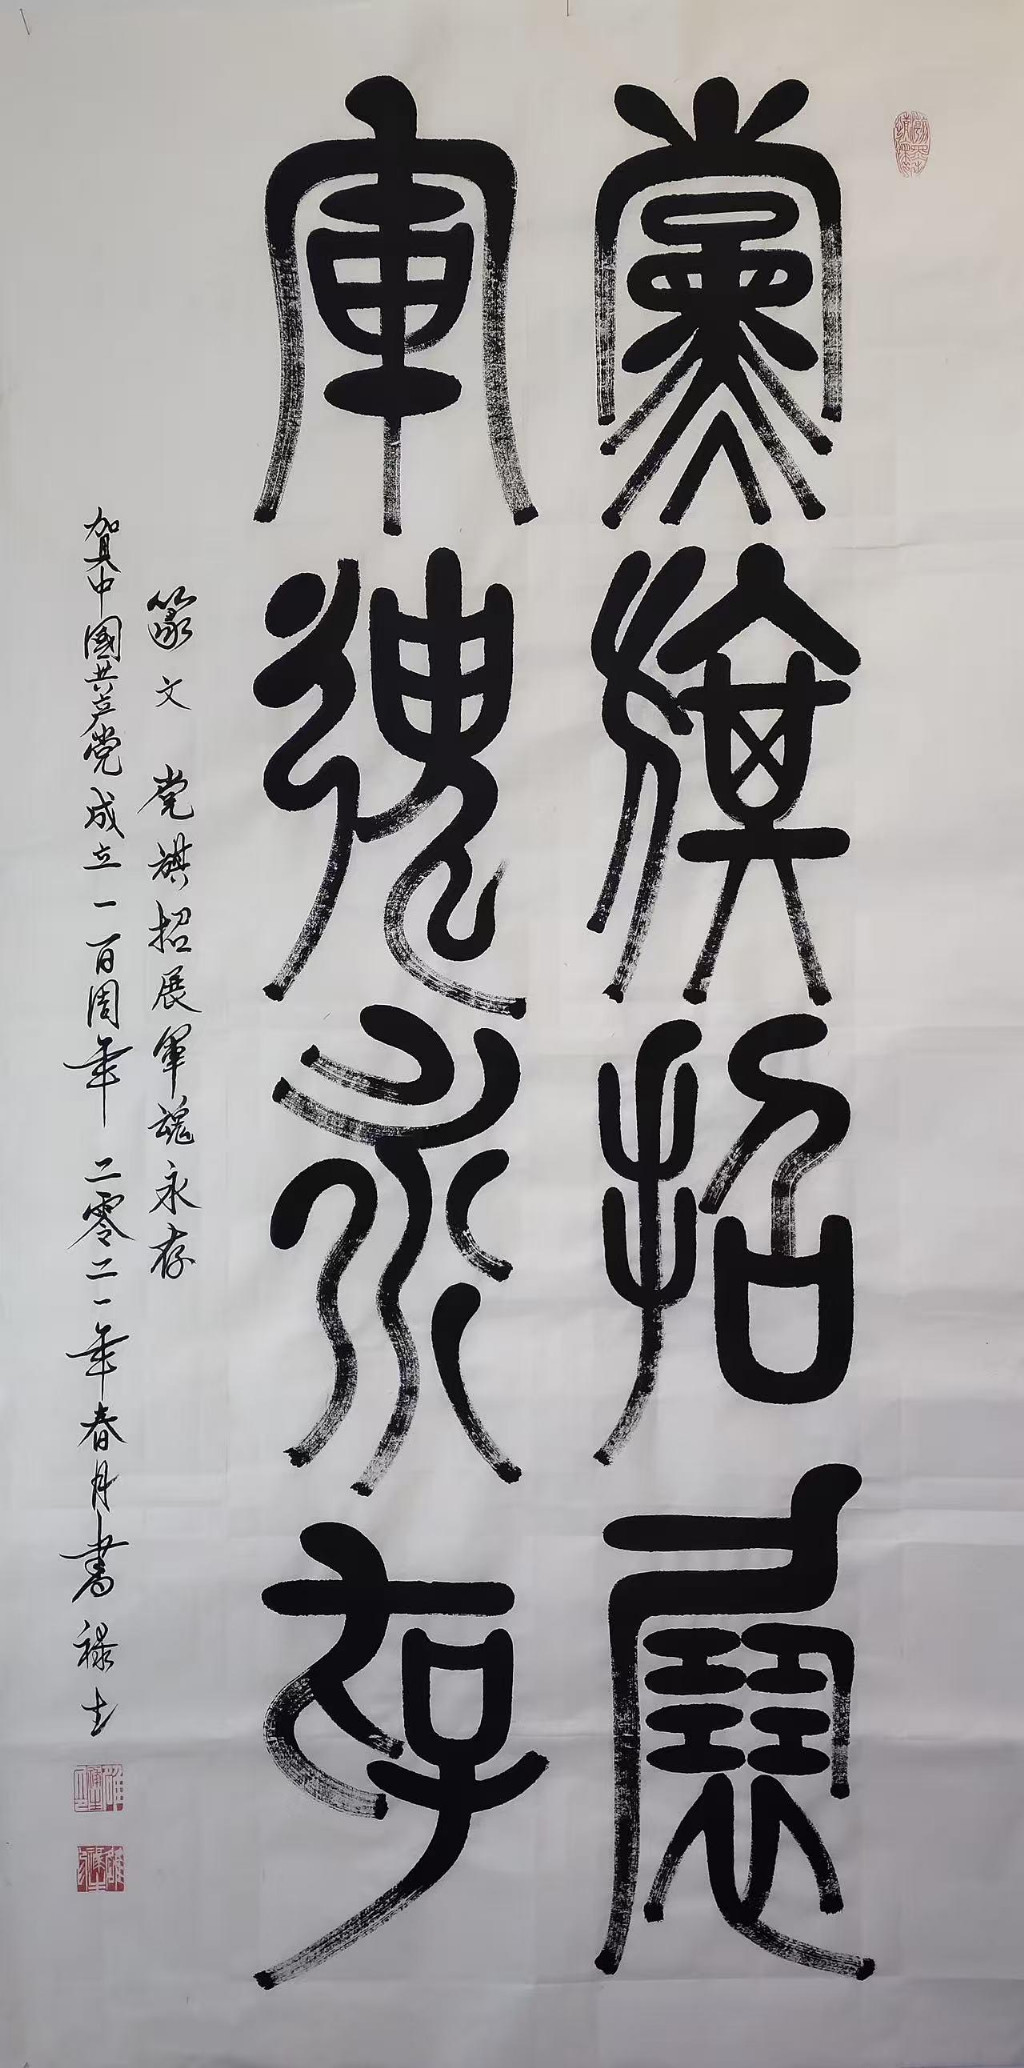 黨旗招展
軍魂永存
篆文 党旗招展軍魂永存
贺中國共产党成立一百周年 二零二一年春月書 禄士